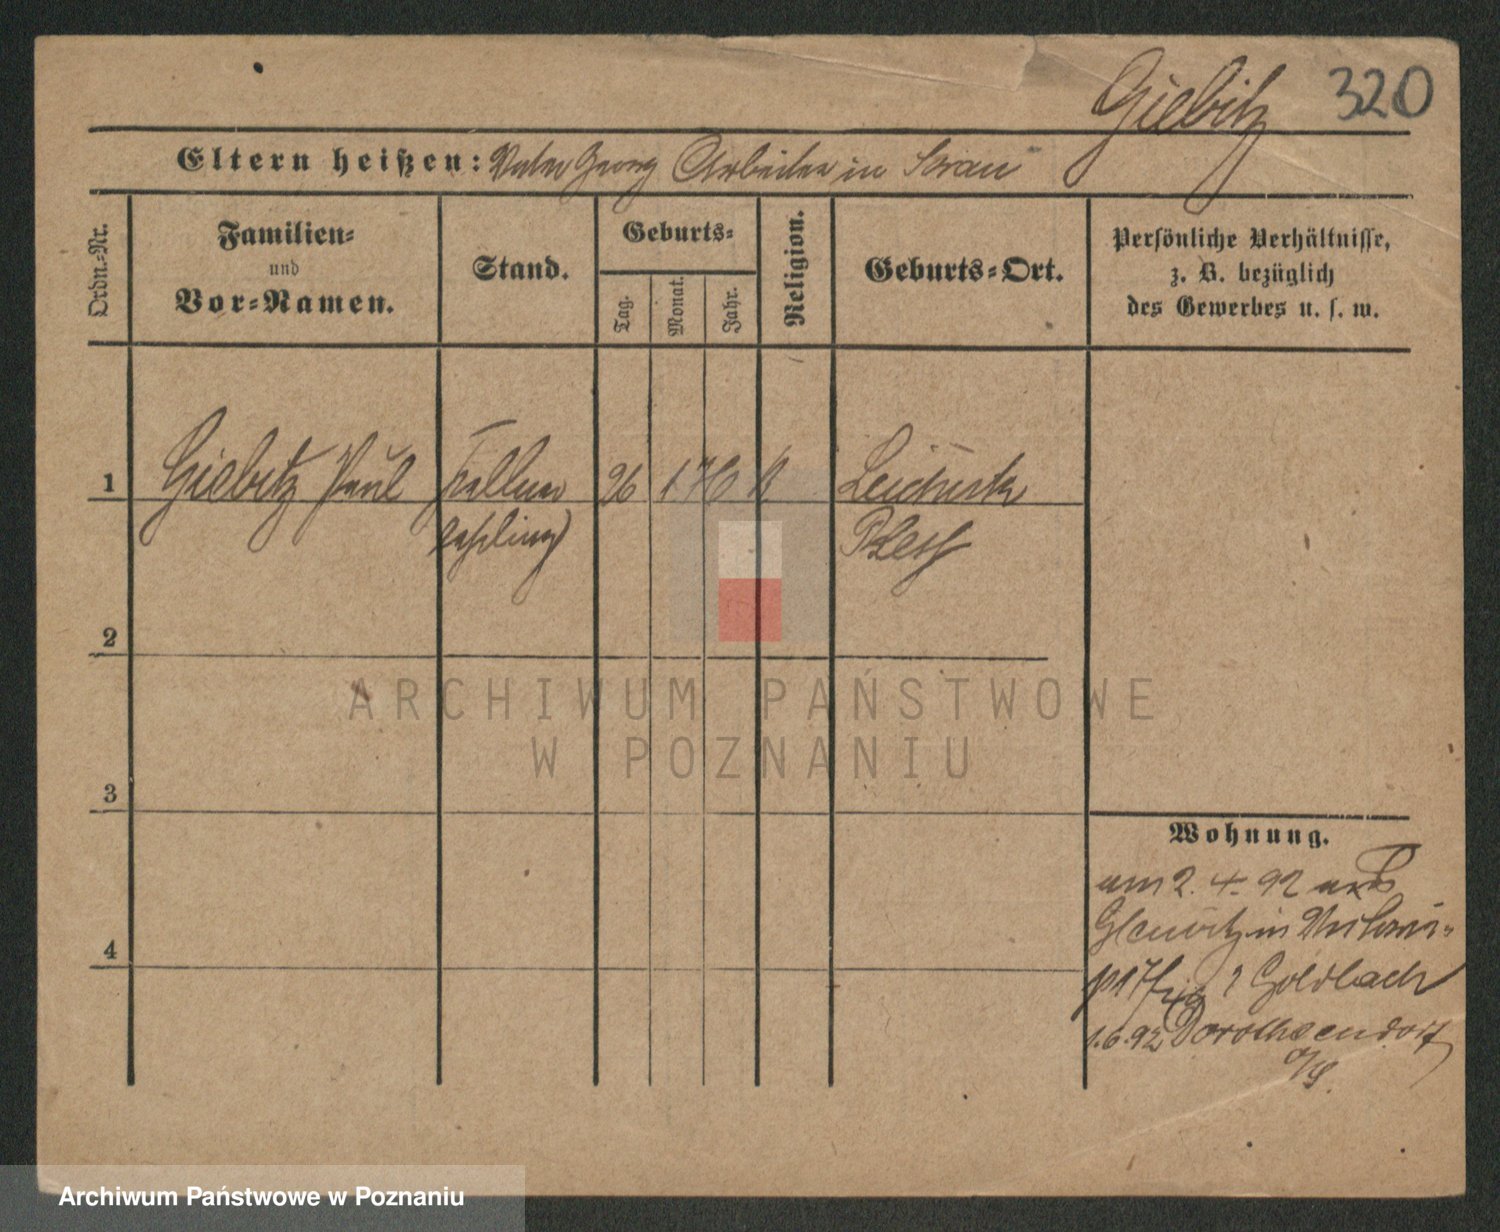 Giebitz 320
Eltern heißen: Vater Georg Arbeiter in Sorau
Ordn.-Nr.
Familien-
und
Vor-Namen.
Stand.
Geburts-
Tag.
Monat.
Jahr.
Religion.
Geburts-Ort.
Persönliche Verhältnisse,
z. B. bezüglich
des Gewerbes u. s. w.
1 Giebitz Paul Kellner 26 1 70 K
lehrling)
Pless
2
ARCHIWUM PAŃSTWOWE
W POZNANIU
3
4
Wohnung.
am 2. 4. 92 aus
Gleiwitz in
Goldbach
1.6.92 Dorotheendorf
O/S.
Archiwum Państwowe w Poznaniu